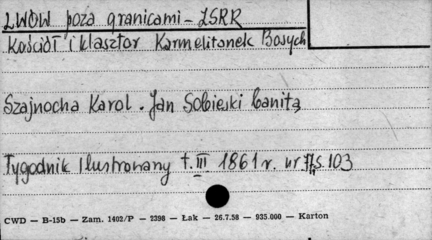 LWÓW poza granicami - ZSRR
Kościół i klasztor Karmelitanek Bosych
Szajnocha Karol. Jan Sobieski banitą
Tygodnik Ilustrowany t. III 1861 r. nr s. 103
CWD — B-15b — Zam. 1402/P — 2398 — Łak — 26.7.58 — 935.000 — Karton